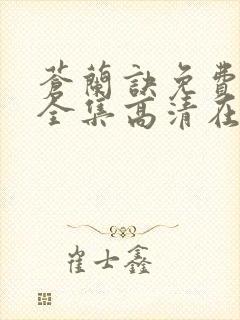 蒼蘭訣免費
全集高清在
崔士鑫